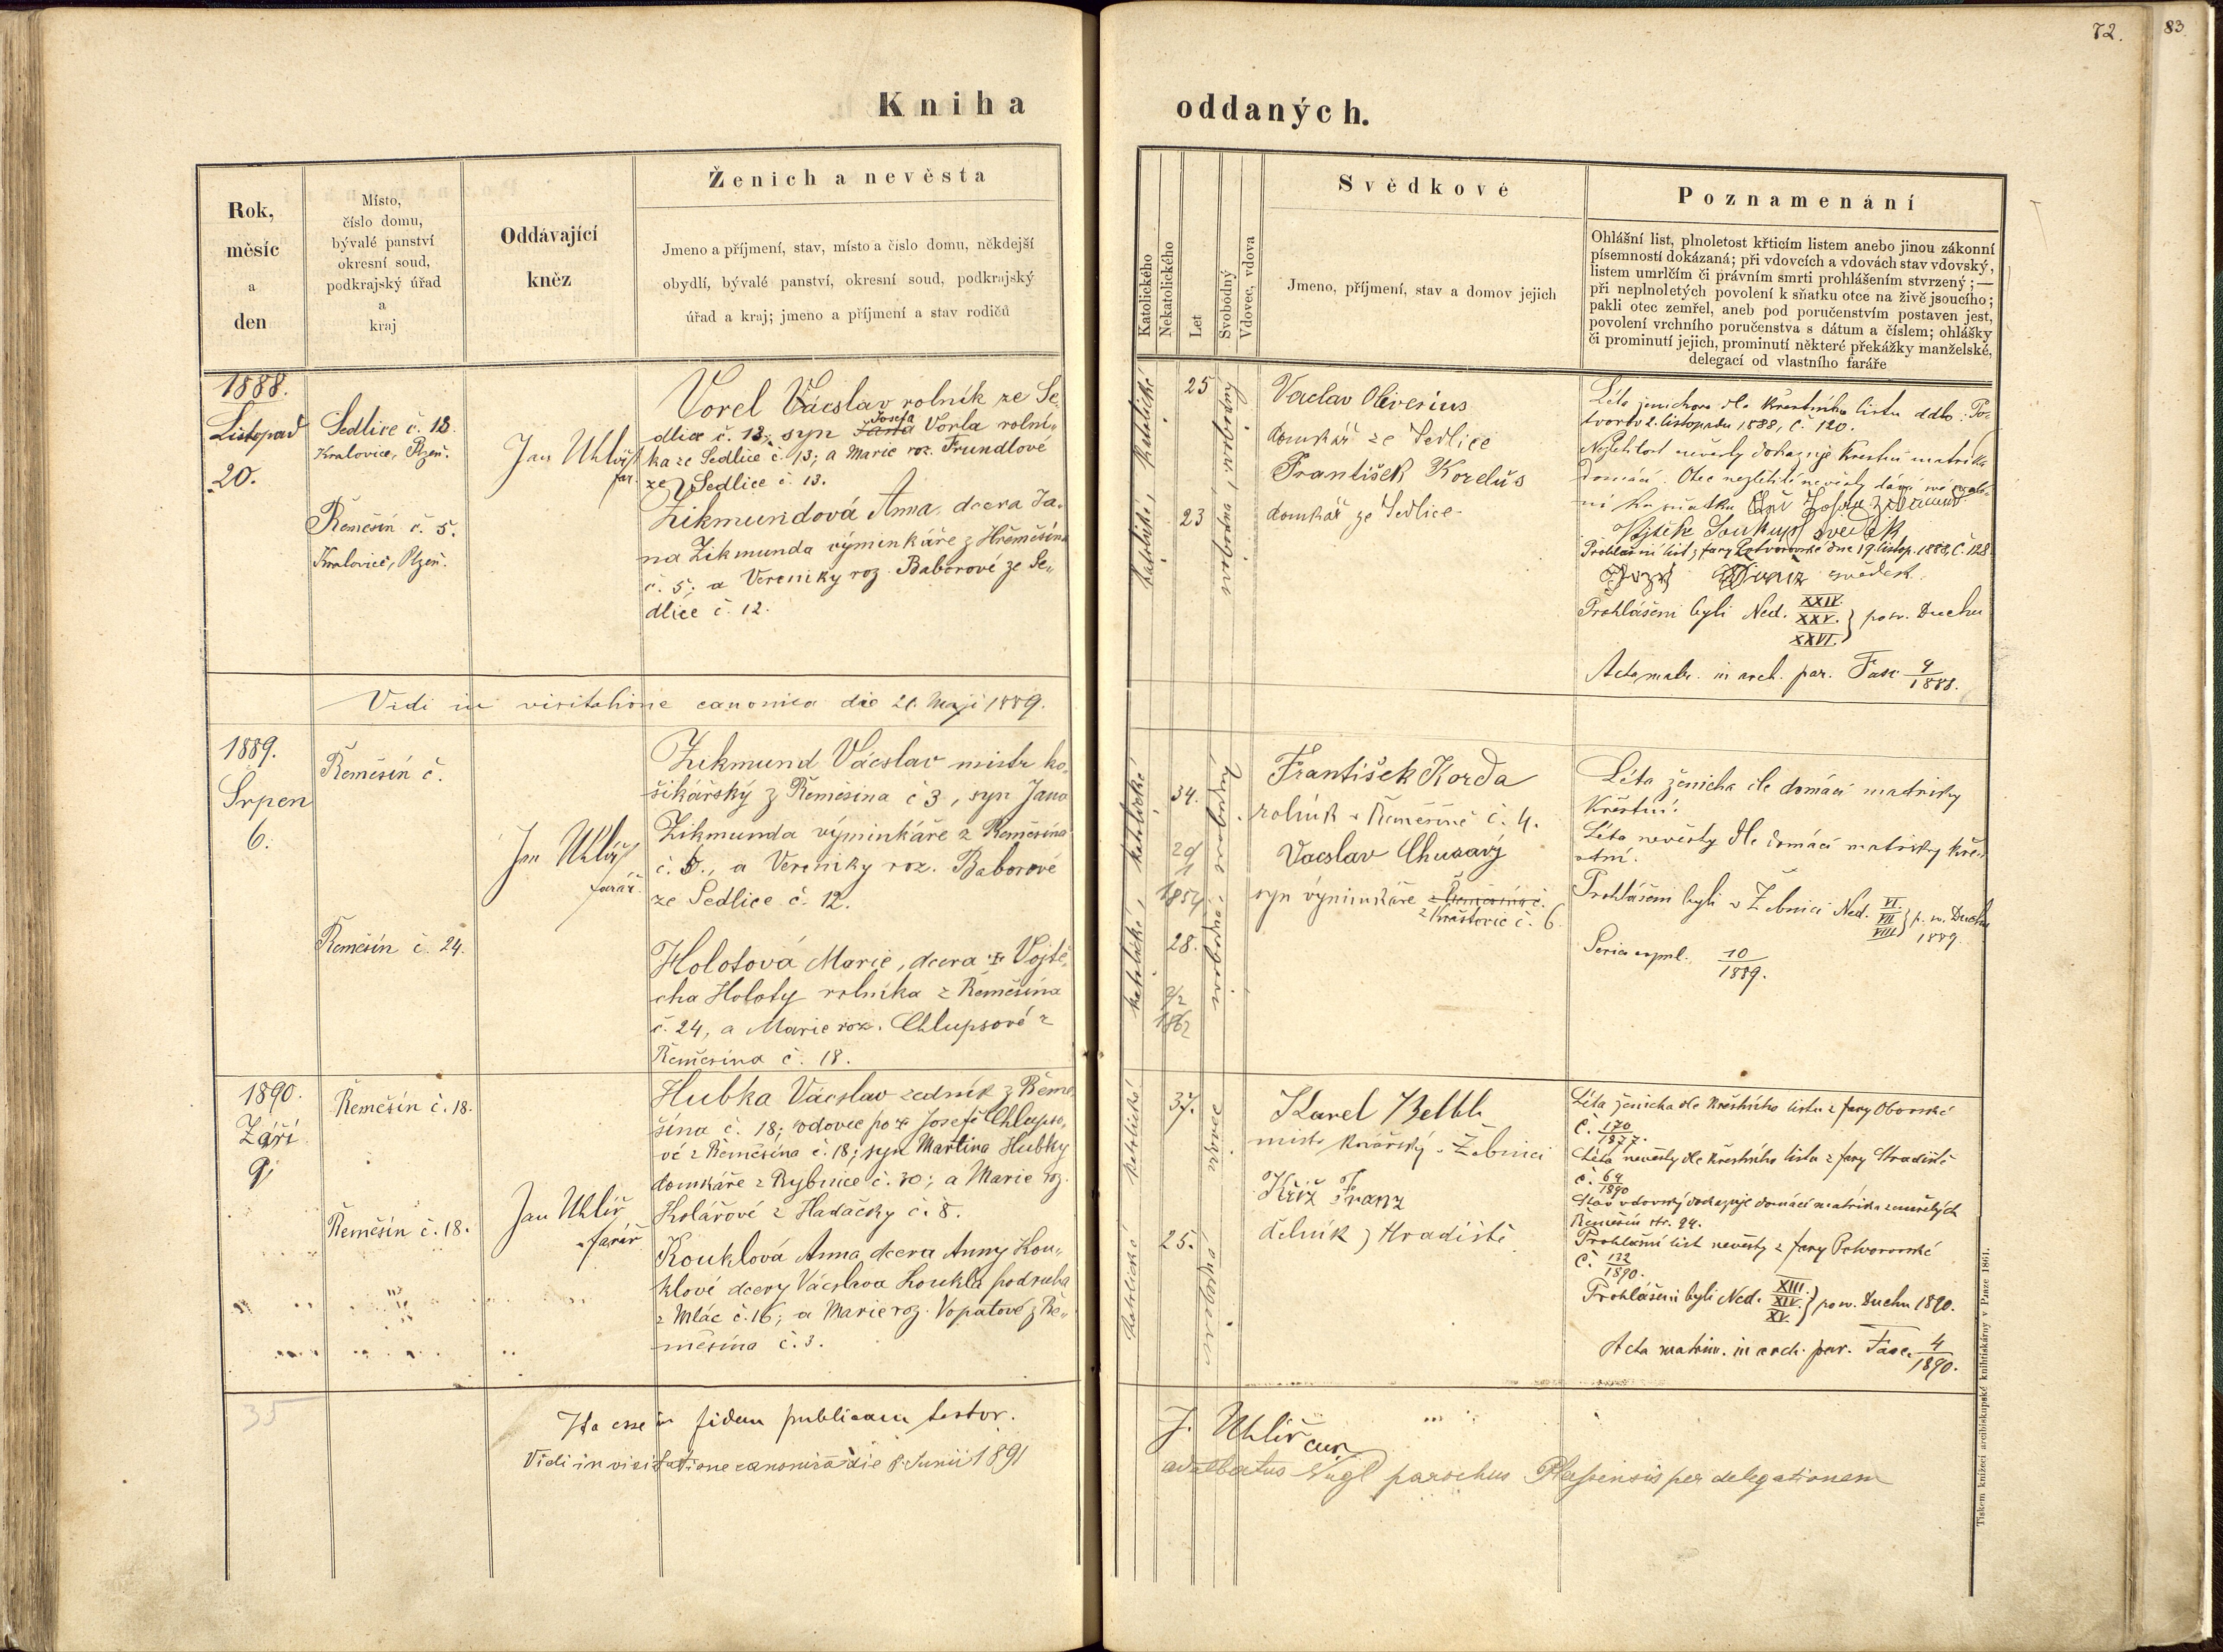 72.
83.
Kniha oddaných.
Rok,
měsíc
a
den
Místo,
číslo domu,
bývalé panství
okresní soud,
podkrajský úřad
a
kraj
Oddávající
kněz
Ženich a nevěsta
Jmeno a příjmení, stav, místo a číslo domu, někdejší
obydlí, bývalé panství, okresní soud, podkrajský
úřad a kraj; jmeno a příjmení a stav rodičů
Katolického
Nekatolického
Let
Svobodný
Vdovec, vdova
Svědkové
Jmeno, příjmení, stav a domov jejich
Poznamenání
Ohlášní list, plnoletost křticím listem anebo jinou zákonní
písemností dokázaná; při vdovcích a vdovách stav vdovský,
listem umrlčím či právním smrti prohlášením stvrzený; —
při neplnoletých povolení k sňatku otce na živě jsoucího;
pakli otec zemřel, aneb pod poručenstvím postaven jest,
povolení vrchního poručenstva s dátum a číslem; ohlášky
či prominutí jejich, prominutí některé překážky manželské,
delegací od vlastního faráře
1888.
Listopad
20.
Sedlice č. 13.
Kralovice, Plzeň.
Řemešín č. 5.
Kralovice, Plzeň.
Jan Uhlíř
far.
Vorel Vácslav rolník ze Se-
dlice č. 13; syn Jana Josefa Vorla rolní-
ka ze Sedlice č. 13; a Marie roz. Trundlové
ze Sedlice č. 13.
Zikmundová Anna, dcera Ja-
na Zikmunda výminkáře z Hřemešína
č. 5; a Veroniky roz. Baborové ze Se-
dlice č. 12.
katolické, katolické
25
23
svobodná, svobodný
Vaclav Oliverius
domkář ze Sedlice
František Koreluš
domkář ze Sedlice
Léta ženichova dle křestního listu ddto: Po-
tvorov 2. listopadu 1888, č. 120.
Nezletilost nevěsty dokazuje křestní matrika
domácí. Otec nezletilé nevěsty dává své svole-
ní ku sňatku
Soukup svědek
Prohlašní list z fary Potvorovské dne 19. listop. 1888, č. 128
svědek.
Prohlášeni byli Ned. XXIV. XXV. XXVI. } po sv. Duchu
Acta matr. in arch. par. Fasc 4/1888.
Vidi in visitatione canonica die 21. Maji 1889.
1889.
Srpen
6.
Řemešín č.
Řemešín č. 24.
Jan Uhlíř
farář.
Zikmund Vácslav mistr ko-
šikářský z Řemešína č 3, syn Jana
Zikmunda výminkáře z Řemešína
č. 5., a Veroniky roz. Baborové
ze Sedlice č. 12.
Holotová Marie, dcera Vojtě-
cha Holoty rolníka z Řemešína
č. 24, a Marie roz. Chlupsové z
Řemešína č. 18.
katolické, katolické
34.
29/1
1854
28.
2/2
1862
svobodná, svobodný
František Korda
rolník v Řemešíně č. 4.
Vacslav Churavý
syn výminkáře z Řemešína č.
z Kraštovic č. 6.
Léta ženicha dle domácí matriky
křestní.
Léta nevěsty dle domácí matriky kře-
stní.
Prohlášeni byli v Žebnici Ned. VI. VII. VIII. } p. sv. Duchu
1889.
10/1889.
1890.
Září
9.
Řemešín č. 18.
Řemešín č. 18.
Jan Uhlíř
farář
Hubka Vácslav zedník z Řeme-
šína č. 18; vdovec po Josefě Chlupso-
vé z Řemešína č. 18; syn Martina Hubky
domkáře z Rybnice č. 30; a Marie roz.
Kolářové z Hadačky č. 8.
Kouklová Anna dcera Anny Kou-
klové dcery Vácslava Koukla podruha
z Mlác č. 16; a Marie roz. Vopatové z Ře-
měšína č. 3.
katolické katolické
37.
25.
svobodná vdovec
Karel Beltl
mistr kovářský v Žebnici
Kříž Franz
dělník z Hradiště
Léta ženicha dle křestního listu z fary Oborské
č. 170/1877.
Léta nevěsty dle křestního listu z fary Hradiště
č. 64/1890
Stav vdovský dokazuje domácí matrika zemřelých
Řemešín str. 24.
Prohlašní list nevěsty z fary Potvorovské
č. 122/1890.
Prohlášeni byli Ned. XIII. XIV. XV. } po sv. Duchu 1890.
Acta matrim. in arch. par. Fasc. 4/1890.
35
Ita esse in fidem publicam testor.
J. Uhlíř cur.
Vidi in visitatione canonica die 8. Junii 1891
Adalbertus parochus Plassensis per delegationem
Tiskem knížecí arcibiskupské knihtiskárny v Praze 1861.